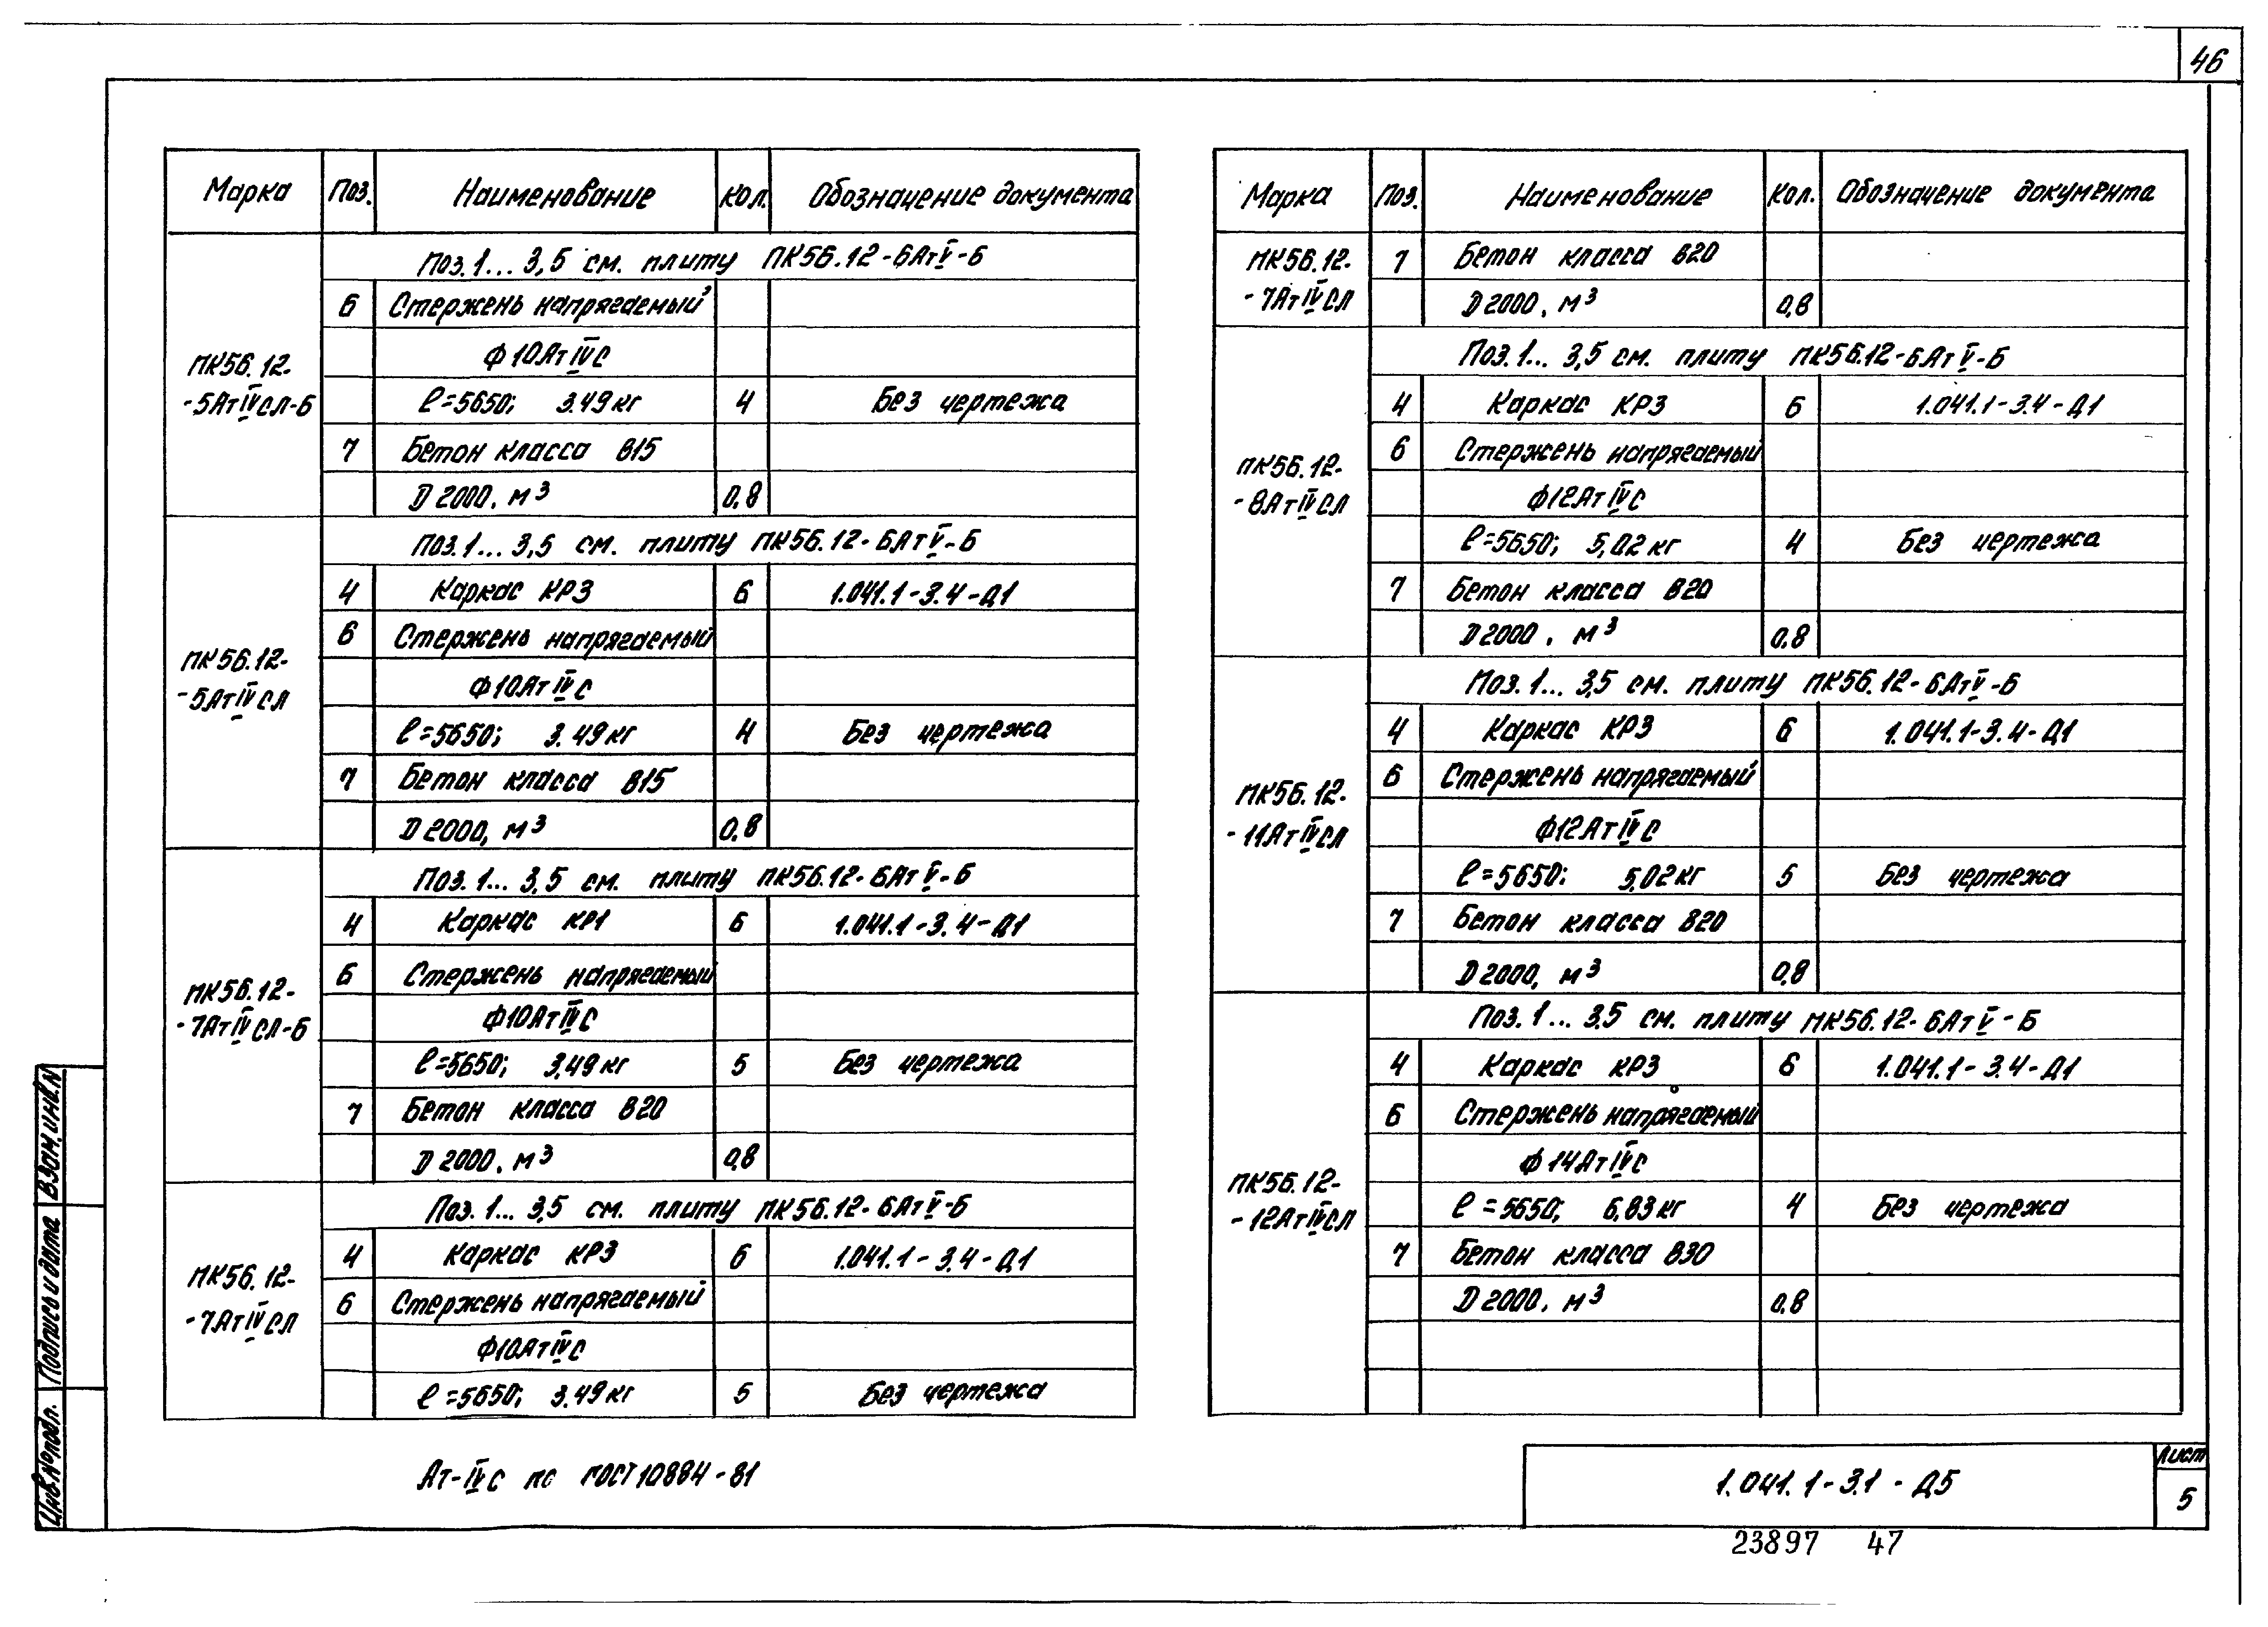 46
Марка Поз. Наименование Кол. Обозначение документа
ПК56.12-
-5АтIVСЛ-Б
Поз.1... 3,5 см. плиту ПК56.12-6АтV-Б
6 Стержень напрягаемый
Ф10АтIVС
ℓ=5650; 3.49кг 4 Без чертежа
7 Бетон класса В15
D 2000, м³ 0,8
ПК56.12-
-5АтIVСЛ
Поз.1... 3,5 см. плиту ПК56.12-6АтV-Б
4 Каркас КР3 6 1.041.1-3.4-Д1
6 Стержень напрягаемый
Ф10АтIVС
ℓ=5650; 3.49кг 4 Без чертежа
7 Бетон класса В15
D 2000, м³ 0,8
ПК56.12-
-7АтIVСЛ-Б
Поз.1... 3,5 см. плиту ПК56.12-6АтV-Б
4 Каркас КР1 6 1.041.1-3.4-Д1
6 Стержень напрягаемый
Ф10АтIVС
ℓ=5650; 3,49кг 5 Без чертежа
7 Бетон класса В20
D 2000, м³ 0,8
ПК56.12-
-7АтIVСЛ
Поз.1... 3,5 см. плиту ПК56.12-6АтV-Б
4 Каркас КР3 6 1.041.1-3.4-Д1
6 Стержень напрягаемый
Ф10АтIVС
ℓ=5650; 3.49кг 5 Без чертежа
Марка Поз. Наименование Кол. Обозначение документа
ПК56.12-
-7АтIVСЛ
7 Бетон класса В20
D 2000, м³ 0,8
ПК56.12-
-8АтIVСЛ
Поз.1... 3,5 см. плиту ПК56.12-6АтV-Б
4 Каркас КР3 6 1.041.1-3.4-Д1
6 Стержень напрягаемый
Ф12АтIVС
ℓ=5650; 5,02кг 4 Без чертежа
7 Бетон класса В20
D 2000, м³ 0,8
ПК56.12-
-11АтIVСЛ
Поз.1... 3,5 см. плиту ПК56.12-6АтV-Б
4 Каркас КР3 6 1.041.1-3.4-Д1
6 Стержень напрягаемый
Ф12АтIVС
ℓ=5650; 5,02кг 5 Без чертежа
7 Бетон класса В20
D 2000, м³ 0,8
ПК56.12-
-12АтIVСЛ
Поз.1... 3,5 см. плиту ПК56.12-6АтV-Б
4 Каркас КР3 6 1.041.1-3.4-Д1
6 Стержень напрягаемый
Ф14АтIVС
ℓ=5650; 6,83кг 4 Без чертежа
7 Бетон класса В30
D 2000, м³ 0,8
Ат-IVС по ГОСТ10884-81
1.041.1-3.1-Д5
Лист
5
23897 47
Инв.№подл. Подпись и дата Взам.инв.N